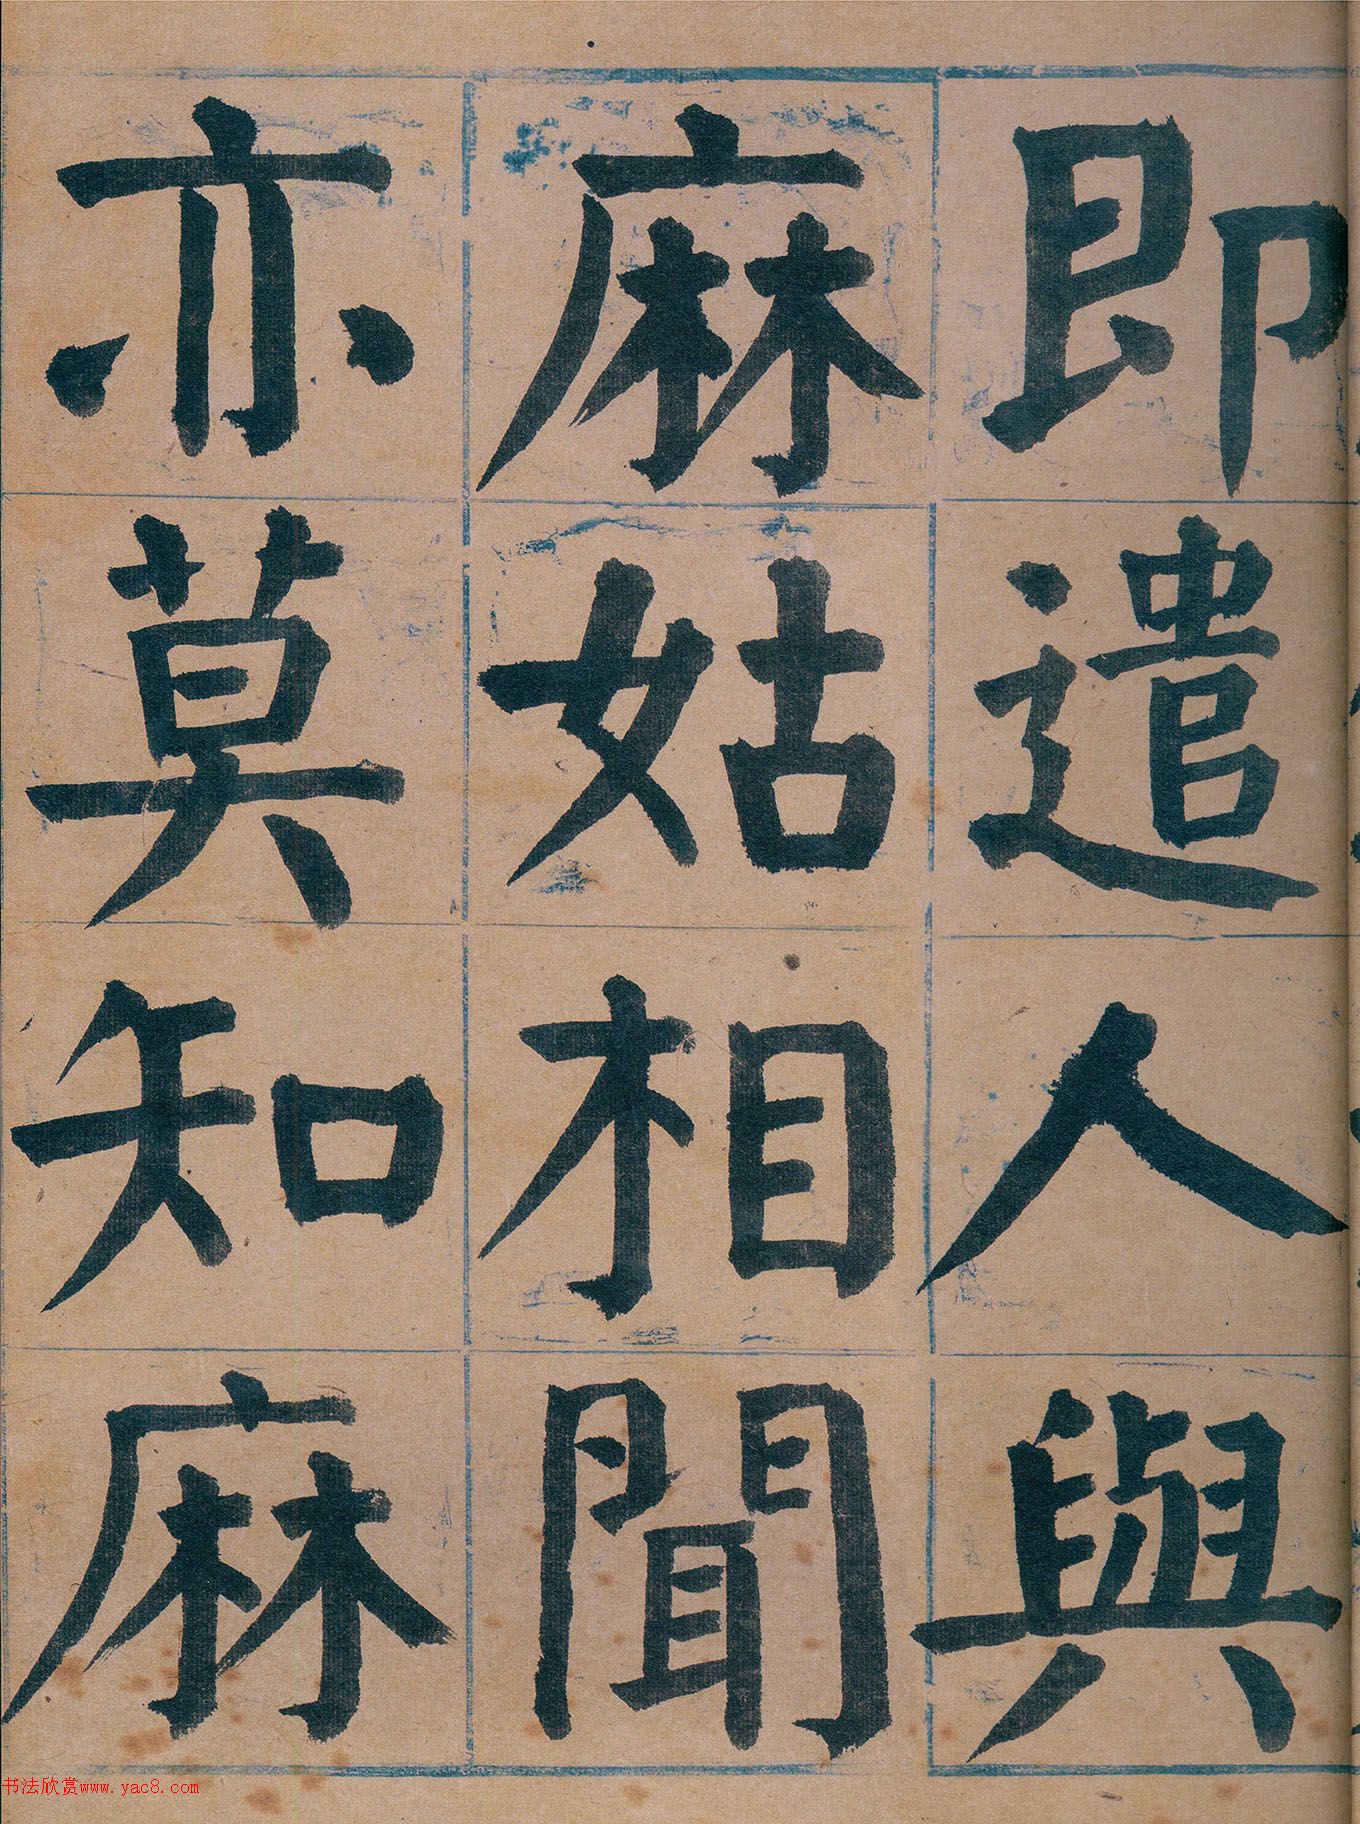 即遣人與
麻姑相聞
亦莫知麻
书法欣赏www.yac8.com